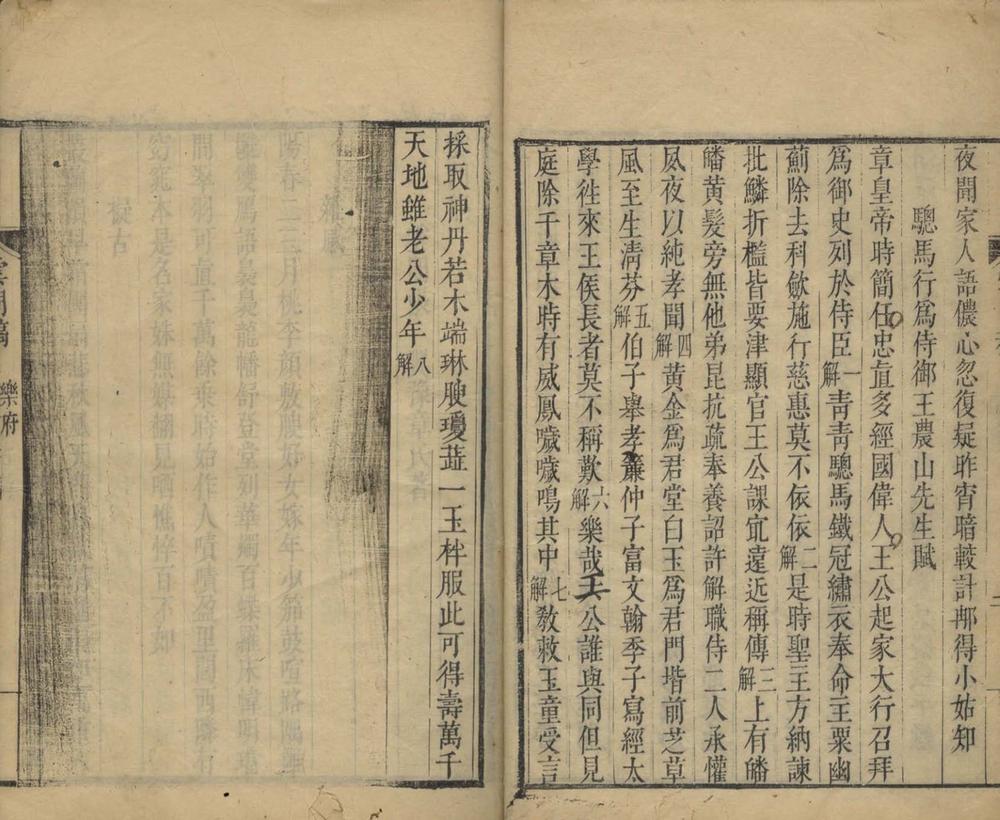 夜聞家人語儂心忽復疑昨宵暗較計郍得小姑知
驄馬行爲侍御王農山先生賦
章皇帝時簡任忠直多經國偉人王公起家大行召拜
爲御史列於侍臣一解靑靑驄馬鐵冠繡衣奉命主粟幽
薊除去科斂施行慈惠莫不依依二解是時聖主方納諫
批鱗折檻皆要津顯官王公課寔遠近稱傳三解上有皤
皤黃髮旁無他弟昆抗疏奉養詔許解職侍二人承懽
夙夜以純孝聞四解黃金爲君堂白玉爲君門堦前芝草
風至生淸芬五解伯子舉孝廉仲子富文翰季子寫經太
學徃來王侯長者莫不稱歎六解樂哉王公誰與同但見
庭除千章木時有威鳳噦噦鳴其中七解敎敕玉童受言
採取神丹若木端琳腴瓊蘂一玉柈服此可得壽萬千
天地雖老公少年八解
樂府